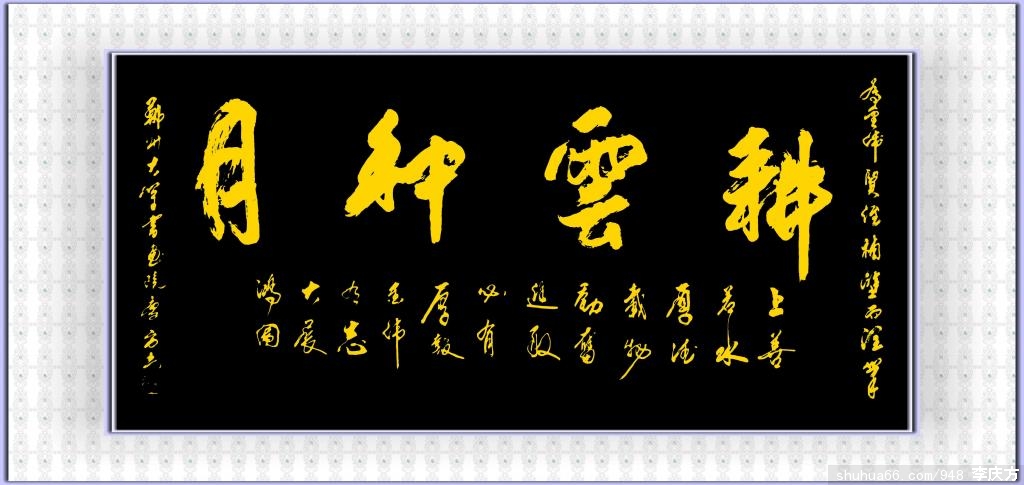 為雲偉賢侄補壁而潤筆
耕雲种月
上善
若水
厚德
載物
勤奮
進取
必有
厚報
雲偉
有志
大展
鴻圖
鄭州大學書畫院慶方
shuhua66.com/948 李庆方